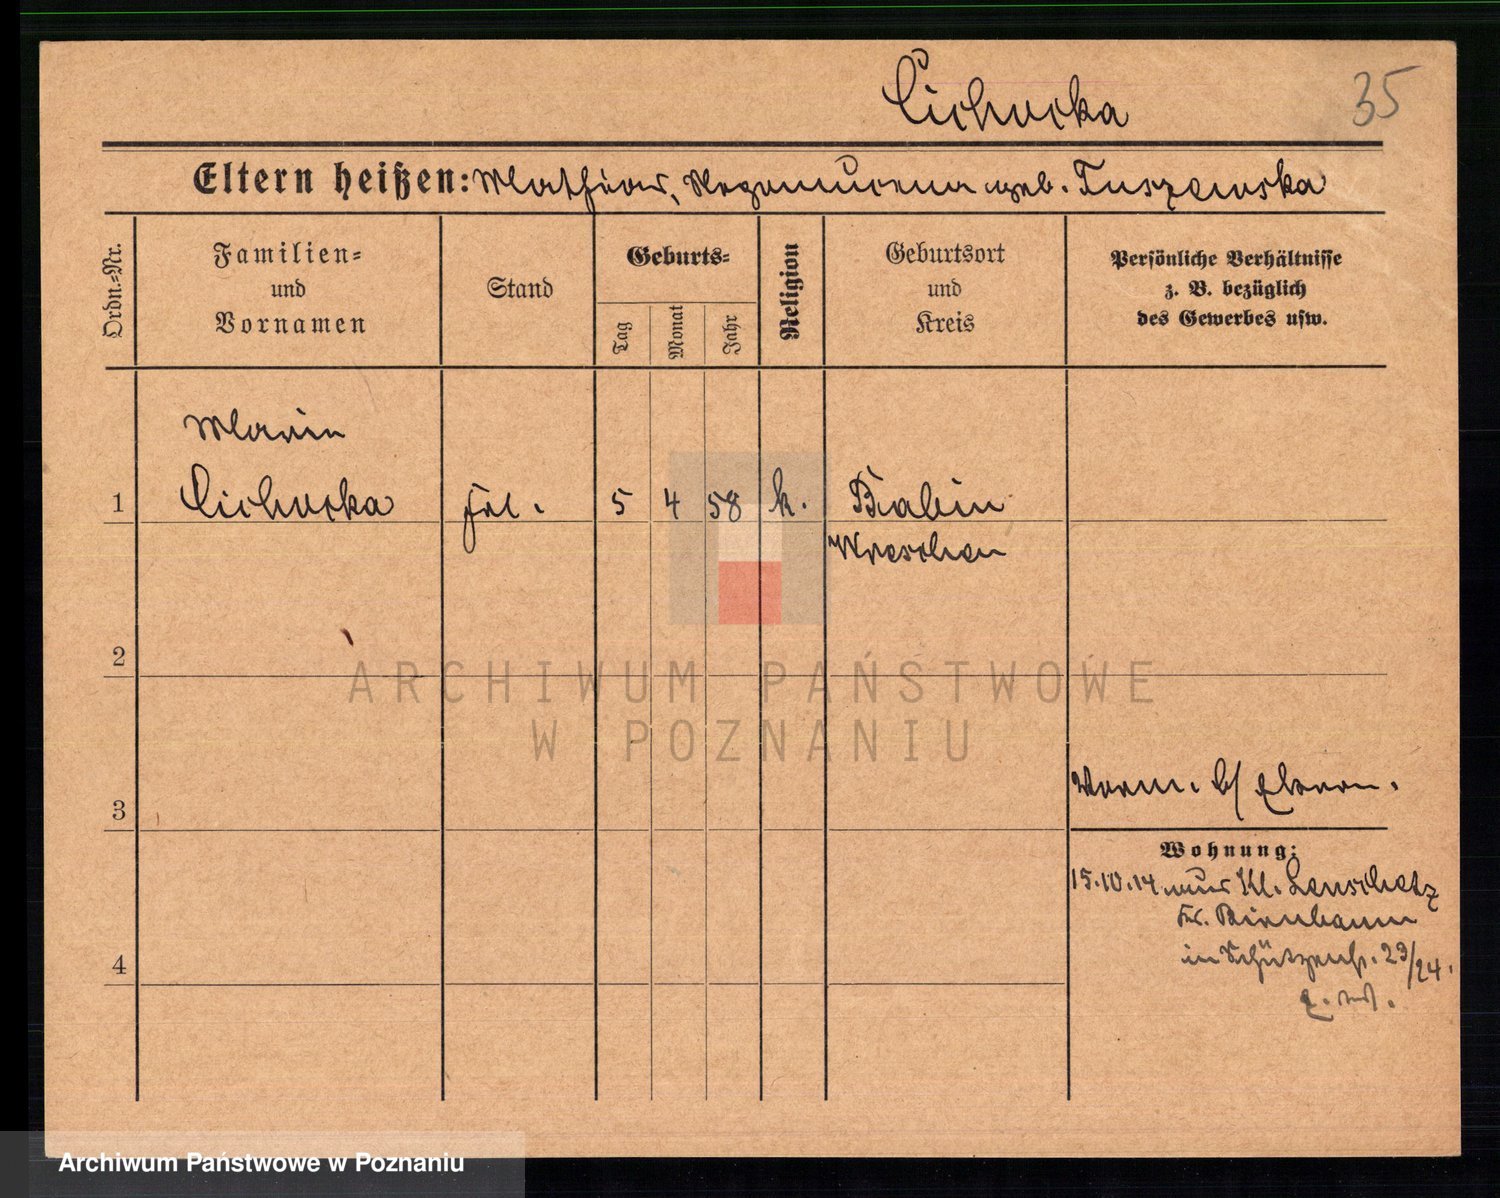 Cichocka
35
Eltern heißen: Mathias, Nepomucena geb. Tuszewska
Ordn.-Nr.
Familien-
und
Vornamen
Stand
Geburts-
Tag
Monat
Jahr
Religion
Geburtsort
und
Kreis
Persönliche Verhältnisse
z. B. bezüglich
des Gewerbes usw.
Maria
1 Cichocka Frl. 5 4 58 k. Babin
Wreschen
2
ARCHIWUM PAŃSTWOWE
W POZNANIU
3
Wohnung:
15.10.14 aus Kl. Lenschetz
Kr. Birnbaum
in Schützenstr. 23/24.
4
Archiwum Państwowe w Poznaniu